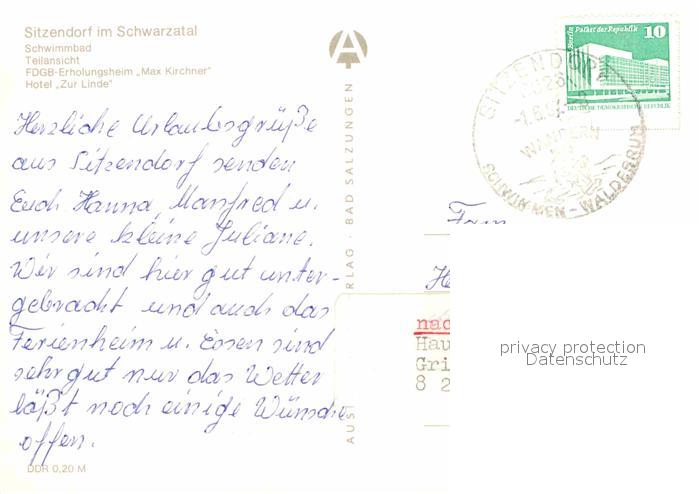 Sitzendorf im Schwarzatal
Schwimmbad
Teilansicht
FDGB-Erholungsheim „Max Kirchner"
Hotel „Zur Linde"
Herzliche Urlaubsgrüße
aus Sitzendorf senden
Euch Hanna, Manfred u.
unsere kleine Juliane.
Wir sind hier gut unter-
gebracht und auch das
Ferienheim u. Essen sind
sehr gut nur das Wetter
läßt noch einige Wünsche
offen.
DDR 0,20 M
A
AUS
RLAG · BAD SALZUNGEN
Berlin Palast der Republik 10
DEUTSCHE DEMOKRATISCHE REPUBLIK
SITZENDORF
WANDERN
SCHWIMMEN - WALDESRUH
Fam
nac
Hau
Gri
8 2
privacy protection
Datenschutz